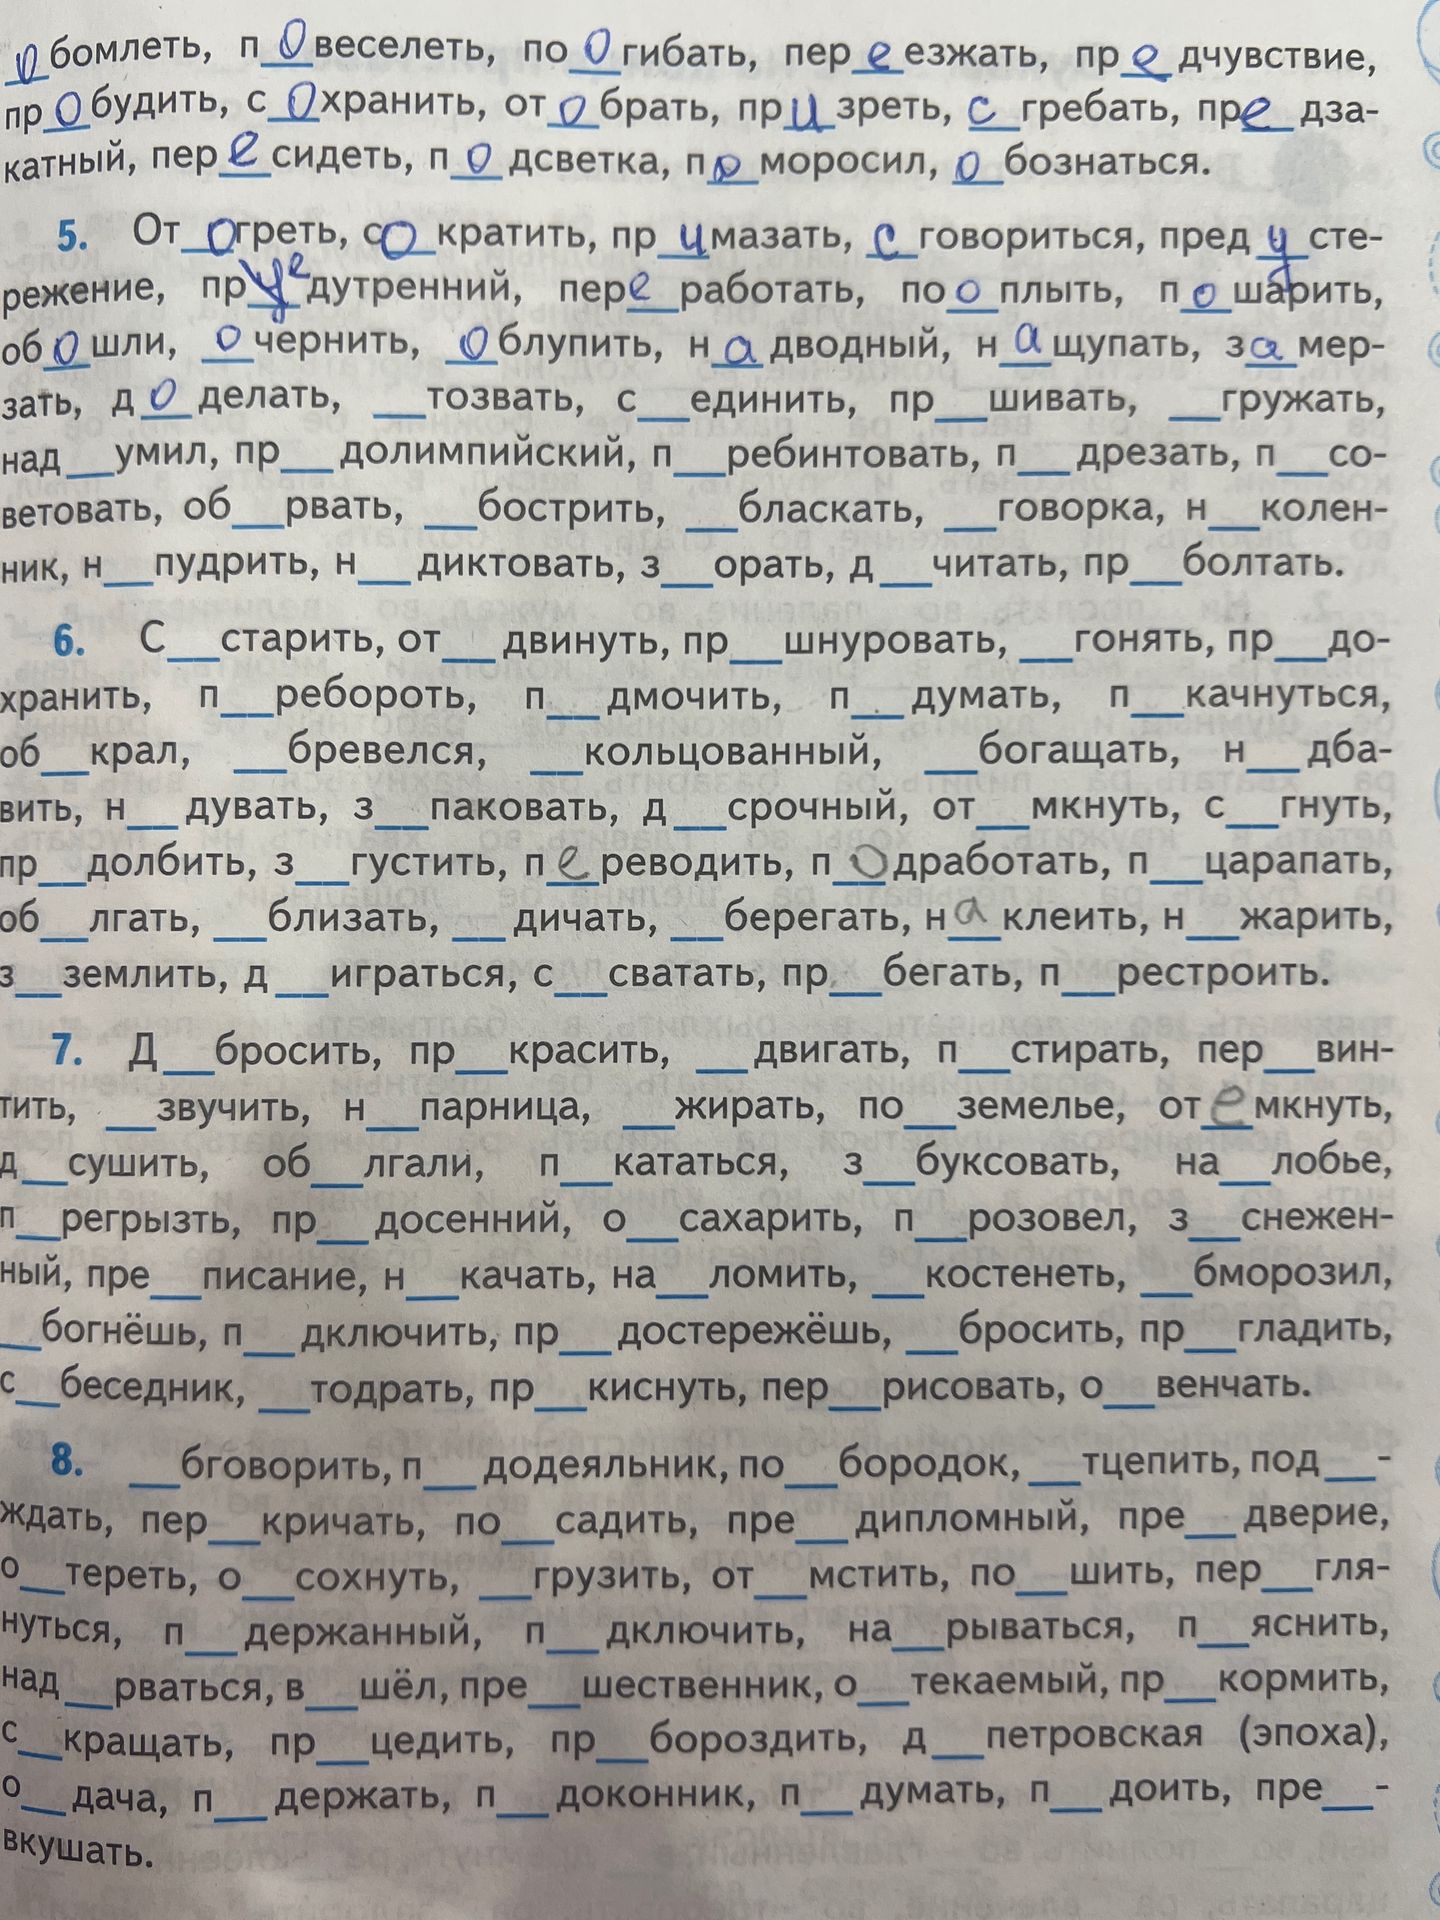 обомлеть, п_о_веселеть, по_о_гибать, пер_е_езжать, пр_е_дчувствие,
пр_о_будить, с_о_хранить, от_о_брать, пр_и_зреть, _с_гребать, пр_е_дза-
катный, пер_е_сидеть, п_о_дсветка, п_о_моросил, _о_бознаться.
5. От_о_греть, с_о_кратить, пр_и_мазать, _с_говориться, пред_у_сте-
режение, пр_е_дутренний, пер_е_работать, по_о_плыть, п_о_шарить,
об_о_шли, _о_чернить, _о_блупить, н_а_дводный, н_а_щупать, з_а_мер-
зать, д_о_делать, __тозвать, с__единить, пр__шивать, __гружать,
над__умил, пр__долимпийский, п__ребинтовать, п__дрезать, п__со-
ветовать, об__рвать, __бострить, __бласкать, __говорка, н__колен-
ник, н__пудрить, н__диктовать, з__орать, д__читать, пр__болтать.
6. С__старить, от__двинуть, пр__шнуровать, __гонять, пр__до-
хранить, п__ребороть, п__дмочить, п__думать, п__качнуться,
об__крал, __бревелся, __кольцованный, __богащать, н__дба-
вить, н__дувать, з__паковать, д__срочный, от__мкнуть, с__гнуть,
пр__долбить, з__густить, п_е_реводить, п_о_дработать, п__царапать,
об__лгать, __близать, __дичать, __берегать, н_а_клеить, н__жарить,
з__землить, д__играться, с__сватать, пр__бегать, п__рестроить.
7. Д__бросить, пр__красить, __двигать, п__стирать, пер__вин-
тить, __звучить, н__парница, __жирать, по__земелье, от_е_мкнуть,
д__сушить, об__лгали, п__кататься, з__буксовать, на__лобье,
п__регрызть, пр__досенний, о__сахарить, п__розовел, з__снежен-
ный, пре__писание, н__качать, на__ломить, __костенеть, __бморозил,
__богнёшь, п__дключить, пр__достережёшь, __бросить, пр__гладить,
с__беседник, __тодрать, пр__киснуть, пер__рисовать, о__венчать.
8. __бговорить, п__додеяльник, по__бородок, __тцепить, под__-
ждать, пер__кричать, по__садить, пре__дипломный, пре__дверие,
о__тереть, о__сохнуть, __грузить, от__мстить, по__шить, пер__гля-
нуться, п__держанный, п__дключить, на__рываться, п__яснить,
над__рваться, в__шёл, пре__шественник, о__текаемый, пр__кормить,
с__кращать, пр__цедить, пр__бороздить, д__петровская (эпоха),
о__дача, п__держать, п__доконник, п__думать, п__доить, пре__-
вкушать.